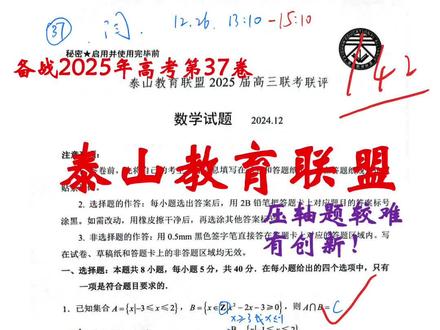 37 闫 12.26. 13:10 -15:10
秘密★启用并使用完毕前
142
备战2025年高考第37卷
泰山教育联盟 2025 届高三联考联评
数学试题 2024.12
泰山教育联盟
2. 选择题的作答：每小题选出答案后，用 2B 铅笔把答题卡上对应题目的答案标号
涂黑。如需改动，用橡皮擦干净后，再选涂其他答案标
压轴题较难
3. 非选择题的作答：用 0.5mm 黑色签字笔直接答在答题卡上对应的答题区域内。写
在试卷、草稿纸和答题卡上的非答题区域均无效。
有创新！
一、选择题：本题共 8 小题，每小题 5 分，共 40 分。在每小题给出的四个选项中，只有
一项是符合题目要求的。
1. 已知集合 A={x|-3≤x≤2}，B={x∈Z|x²-2x-3≥0}，则 A∩B= C
x≥3或x≤-1